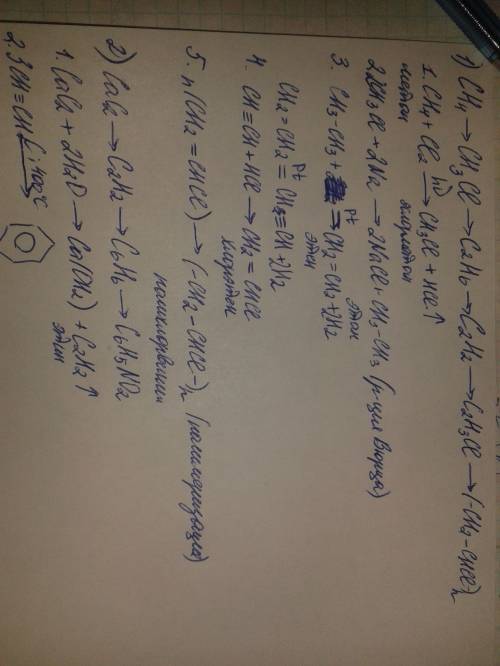 1) CH4 → CH3Cl → C2H6 → C2H2 → C2H3Cl → (-CH2-CHCl-)n
1. CH4 + Cl2 hν→ CH3Cl + HCl↑
метан хлорметан
2. 2CH3Cl + 2Na → 2NaCl + CH3-CH3 (р-ция Вюрца)
этан
3. CH3-CH3 + Pt→ CH2=CH2 + H2
этен
CH2=CH2 Pt= CH≡CH + H2
4. CH≡CH + HCl → CH2=CHCl
хлорэтен
5. n(CH2=CHCl) → (-CH2-CHCl-)n (полимеризация)
поливинил
2) CaC2 → C2H2 → C6H6 → C6H5NO2
1. CaC2 + 2H2O → Ca(OH2) + C2H2↑
этин
2. 3CH≡CH